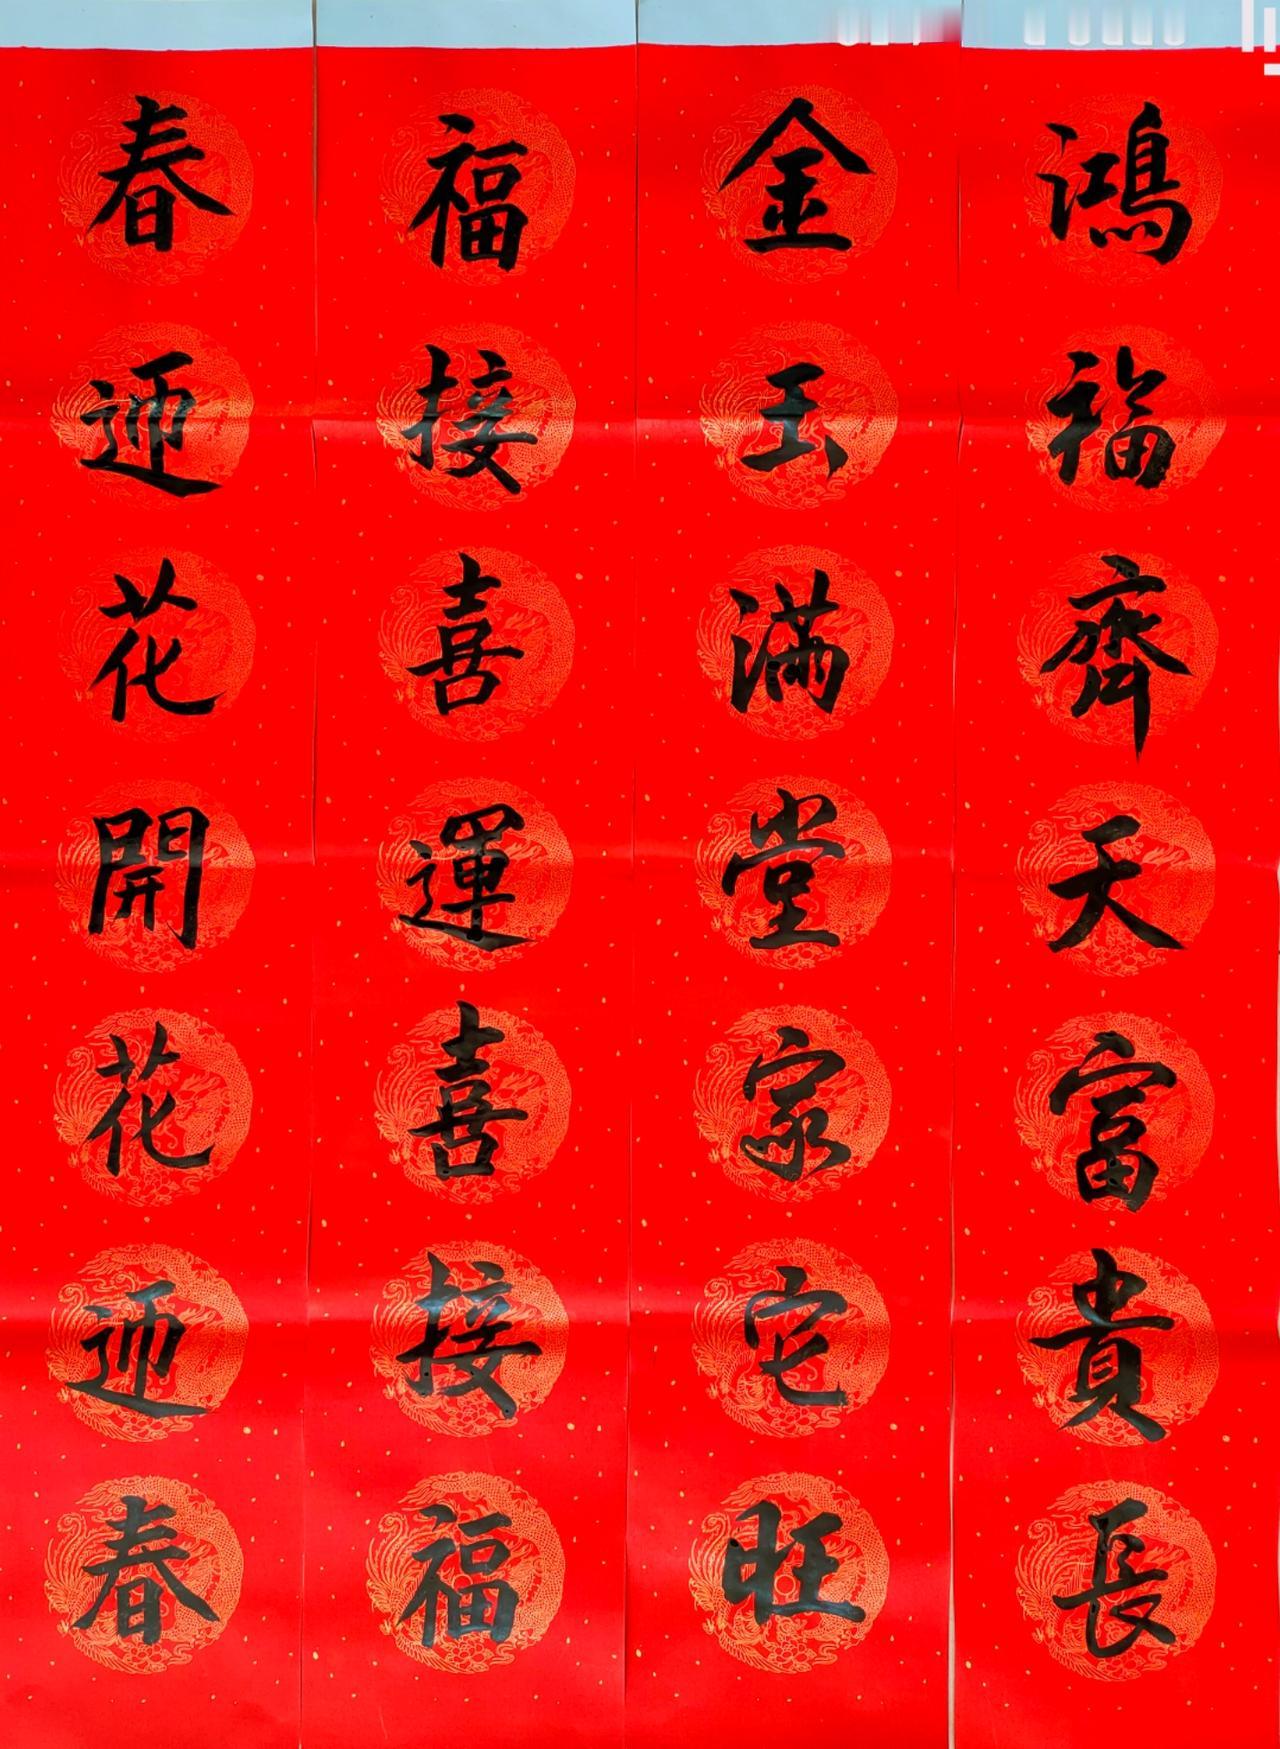 鴻福齊天富貴長
金玉滿堂家宅旺
福接喜運喜接福
春迎花開花迎春